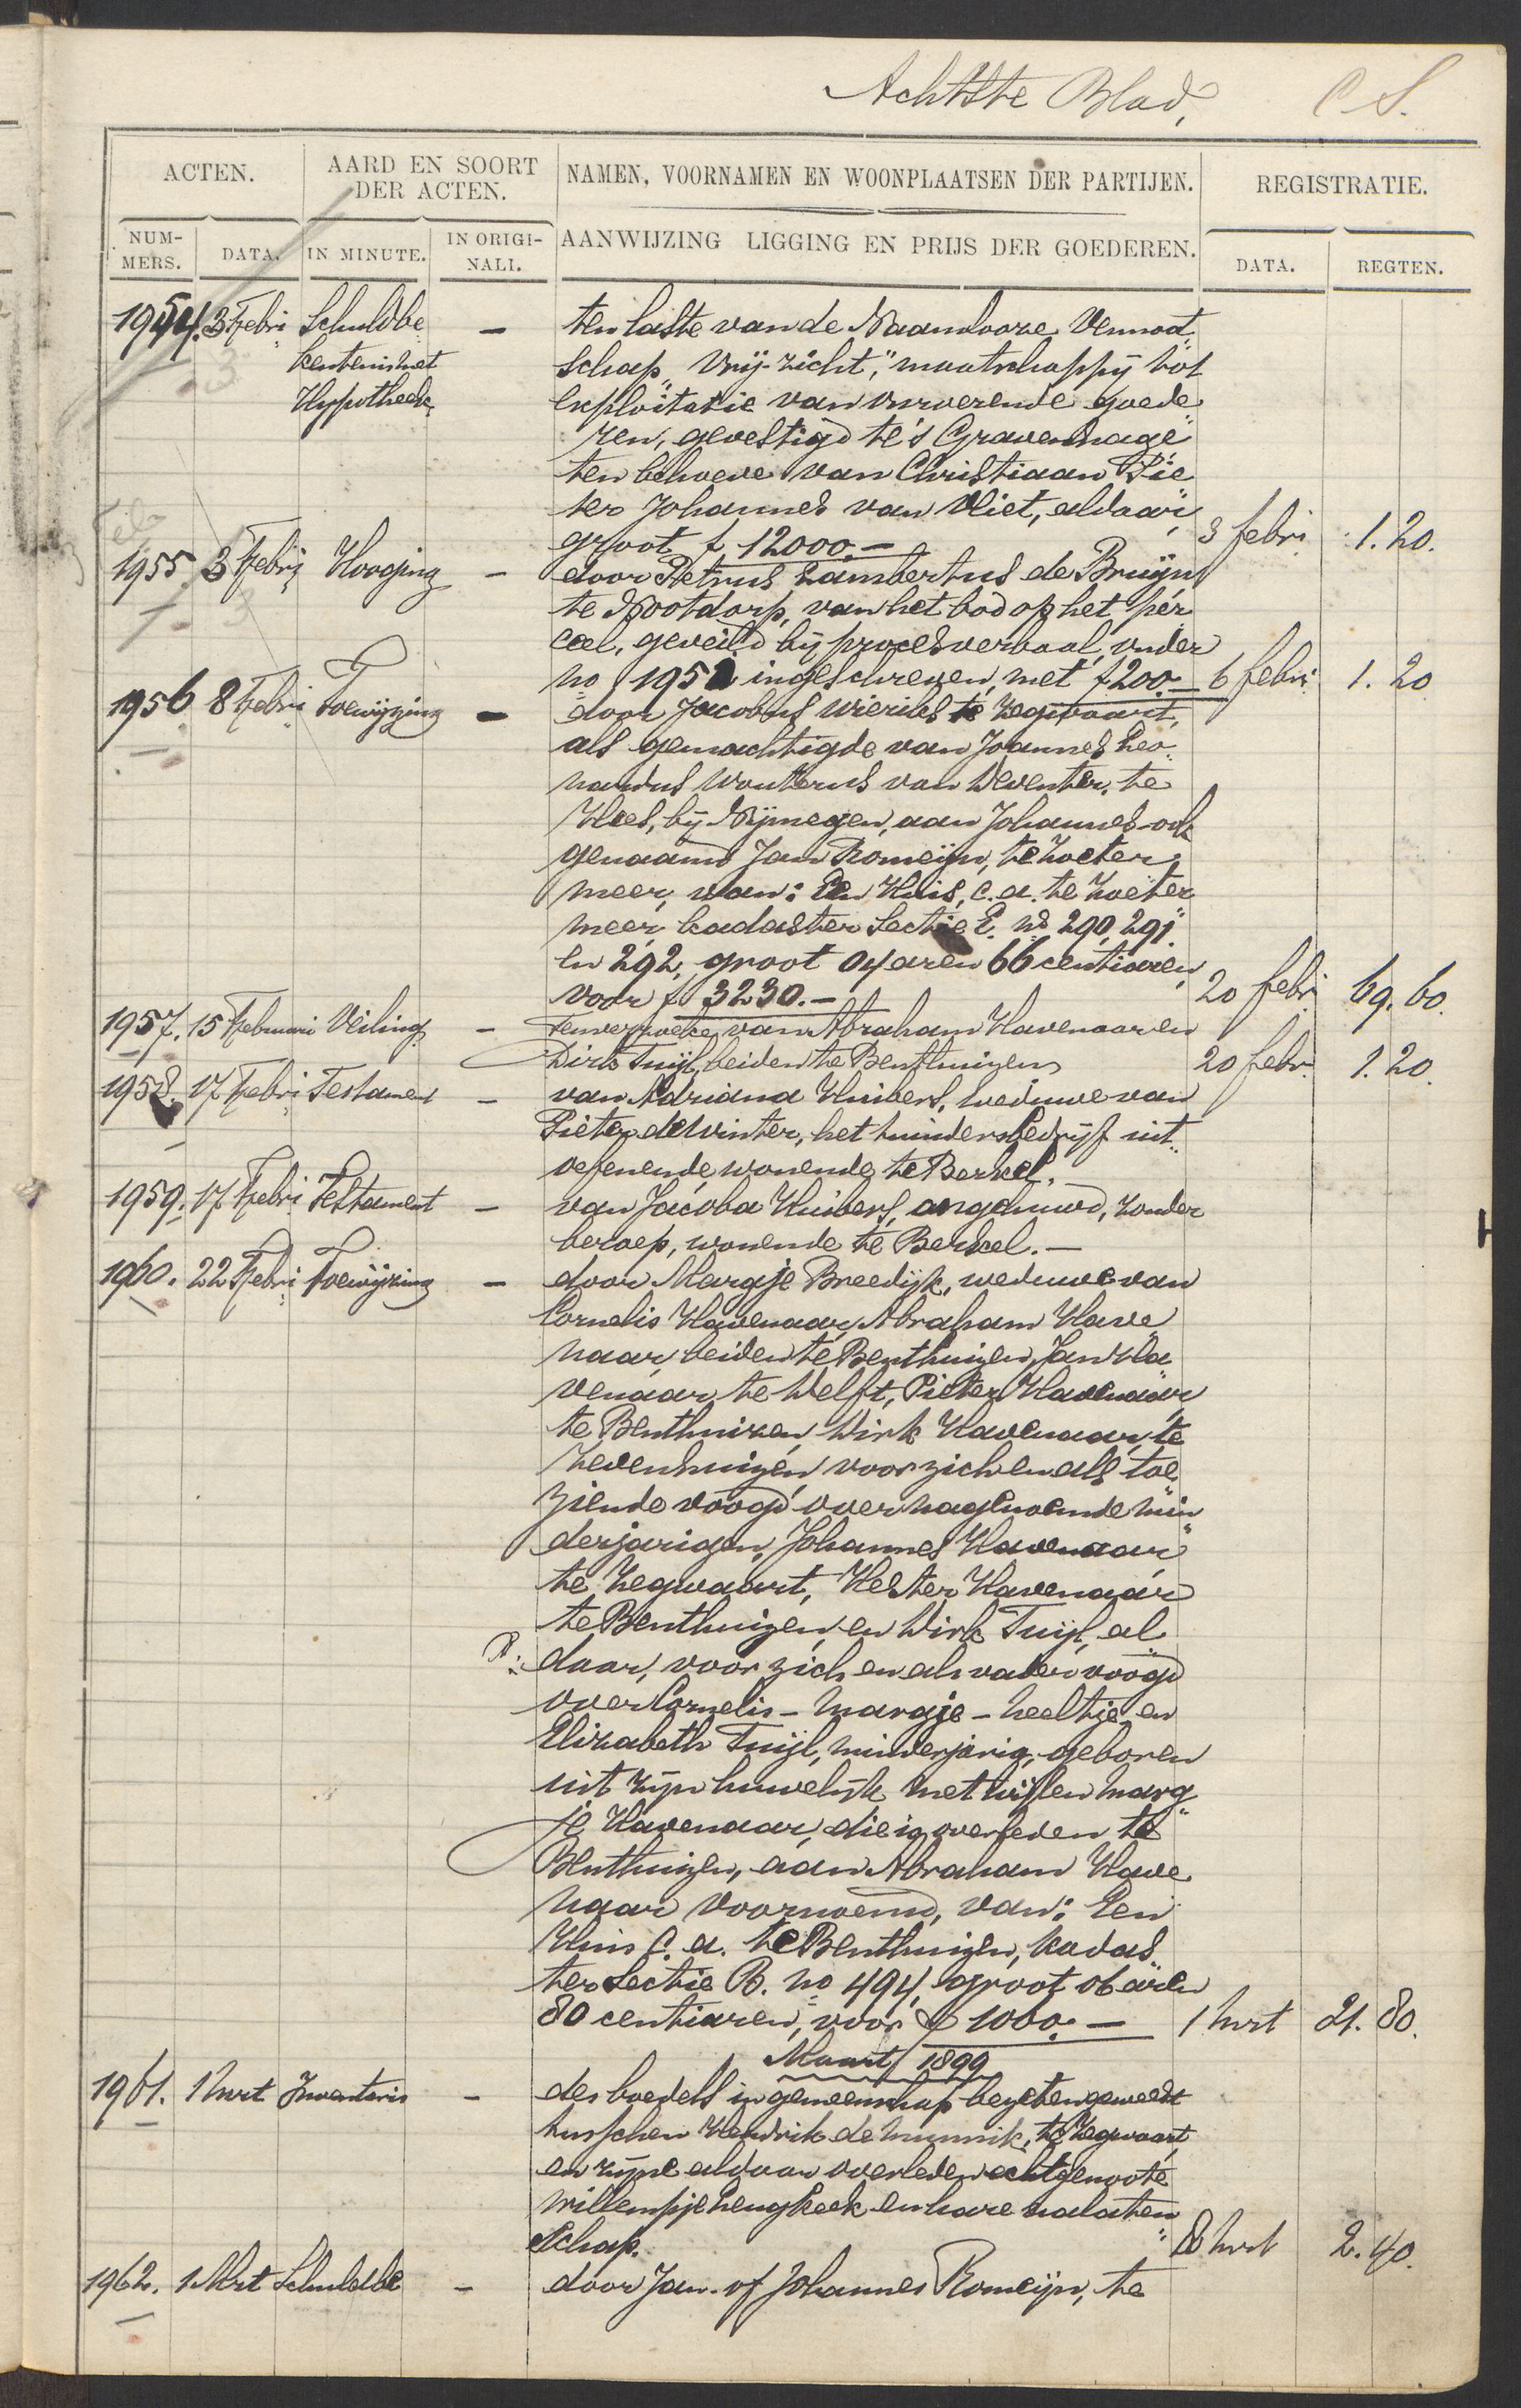 Achtste Blad, C S.
ACTEN. AARD EN SOORT DER ACTEN. NAMEN, VOORNAMEN EN WOONPLAATSEN DER PARTIJEN. REGISTRATIE.
NUM-MERS. DATA. IN MINUTE. IN ORIGI-NALI. AANWIJZING LIGGING EN PRIJS DER GOEDEREN. DATA. REGTEN.
1954. 3 Febri Schuldbe - ten laste van de Naamlooze Vennoot
kentenis met schap "Vrij-zicht," maatschappij tot
Hypotheek exploitatie van onroerende goede
ren, gevestigd te 's Gravenhage
ten behoeve van Christiaan Pie
ter Johannes van Vliet, aldaar,
groot f 12000.- 3 febri 1.20.
1955 3 Febri Hooging - door Petrus Lambertus de Bruijn
te Nootdorp, van het bod op het per
ceel, geveild bij procesverbaal, onder
no 1952 ingeschreven, met f 200.- 6 febri 1.20
1956 8 Febri Toewijzing - door Jacobus Wierids te Zegwaart,
als gemachtigde van Joannes Leo
nardus Wouterus van Deventer, te
Hees, bij Nijmegen, aan Johannes ook
genaamd Jan Romeijn, te Zoeter
meer, van: Een Huis, c.a. te Zoeter
meer, kadaster Sectie E. no 290, 291
en 292, groot 04 aren 66 centiaren,
voor f 3230.- 20 febri 69.60.
1957. 15 Februari Veiling - Ten verzoeke van Abraham Havenaar en
Dirk Tuijl, beiden te Benthuizen 20 febr. 1.20.
1958. 17 Febri Testament - van Adriana Huibers, weduwe van
Pieter de Winter, het tuindersbedrijf uit
oefenende, wonende te Berkel.
1959. 17 Febri Testament - van Jacoba Huibers, ongehuwd, zonder
beroep, wonende te Berkel.-
1960. 22 Febri Toewijzing - door Margje Breedijk, weduwe van
Cornelis Havenaar, Abraham Have
naar, beiden te Benthuizen, Jan Ha
venaar te Delft, Pieter Havenaar
te Benthuizen, Dirk Havenaar, te
Zevenhuizen, voor zich en als toe
ziende voogd over nagenoemde min
derjarigen, Johannes Havenaar
te Zegwaart, Hester Havenaar
te Benthuizen en Dirk Tuijl, al
daar, voor zich en als vader voogd
over Cornelis - Margje - Neeltje en
Elizabeth Tuijl, minderjarig, geboren
uit zijn huwelijk met wijlen Marg
je Havenaar, die is overleden te
Benthuizen, aan Abraham Have
naar voornoemd, van: Een
Huis c.a. te Benthuizen, kadas
ter Sectie B. no 494, groot 06 aren
80 centiaren, voor f 1000.- 1 mrt 21.80.
Maart 1899
1961. 1 mrt Inventaris - des boedels in gemeenschap bezeten geweest
tusschen Hendrik de Munnik, te Zegwaart
en zijne aldaar overleden echtgenoote
Willempje Lengkeek en hare nalaten
schap. 8 mrt 2.40.
1962. 1 Mrt Schuldbe - door Jan of Johannes Romeijn, te